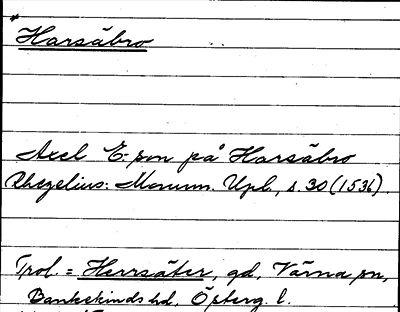 * Harsäbro
Axel E-son på Harsäbro
Rhezelius: Monum. Upl., s. 30 (1536).
Trol. = Herrsäter, gd, Värna sn,
Bankekinds hd, Östergt. l.